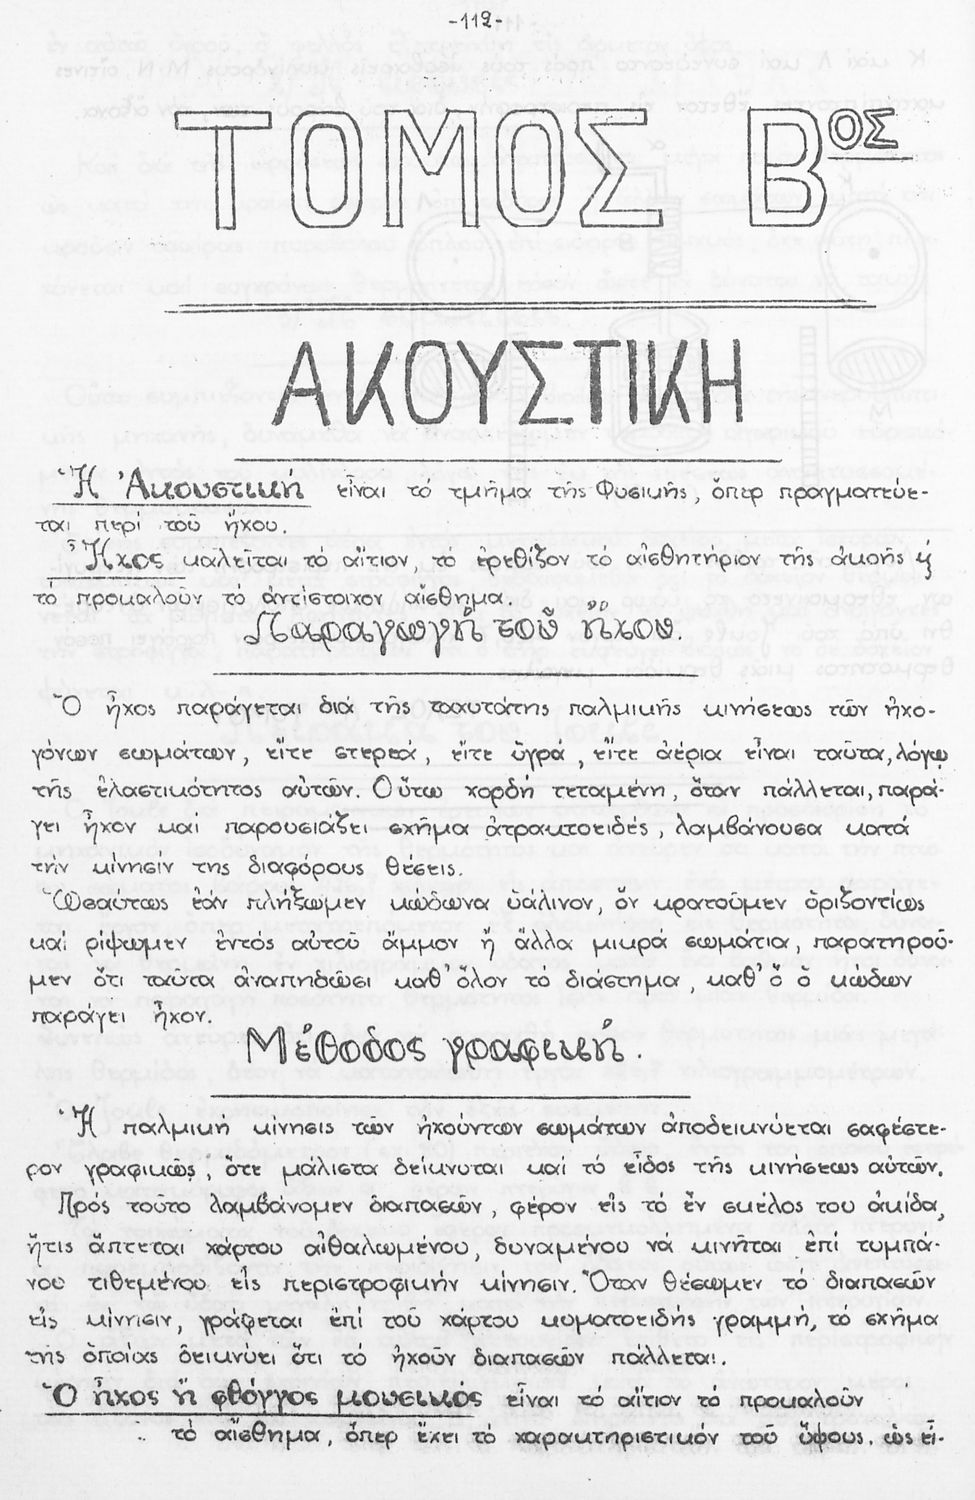 -112-
ΤΟΜΟΣ Β<sup>ΟΣ</sup>
ΑΚΟΥΣΤΙΚΗ
Ἡ Ἀκουστική εἶναι τό τμῆμα τῆς Φυσικῆς, ὅπερ πραγματεύε-
ται περί τοῦ ἤχου.
Ἦχος καλεῖται τό αἴτιον, τό ἐρεθίζον τό αἰσθητήριον τῆς ἀκοῆς ἤ
τό προκαλοῦν τό ἀντίστοιχον αἴσθημα.
Παραγωγή τοῦ ἤχου.
Ὁ ἦχος παράγεται διά τῆς ταχυτάτης παλμικῆς κινήσεως τῶν ἠχο-
γόνων σωμάτων, εἴτε στερεά, εἴτε ὑγρά, εἴτε ἀέρια εἶναι ταῦτα, λόγῳ
τῆς ἐλαστικότητος αὐτῶν. Οὕτω χορδή τεταμένη, ὅταν πάλλεται, παρά-
γει ἦχον καί παρουσιάζει σχῆμα ἀτρακτοειδές, λαμβάνουσα κατά
τήν κίνησίν της διαφόρους θέσεις.
Ὡσαύτως ἐάν πλήξωμεν κώδωνα ὑάλινον, ὅν κρατοῦμεν ὁριζοντίως
καί ρίψωμεν ἐντός αὐτοῦ ἄμμον ἤ ἄλλα μικρά σωμάτια, παρατηροῦ-
μεν ὅτι ταῦτα ἀναπηδῶσι καθ' ὅλον τό διάστημα, καθ' ὅ ὁ κώδων
παράγει ἦχον.
Μέθοδος γραφική.
Ἡ παλμική κίνησις τῶν ἠχούντων σωμάτων ἀποδεικνύεται σαφέστε-
ρον γραφικῶς, ὅτε μάλιστα δείκνυται καί τό εἶδος τῆς κινήσεως αὐτῶν.
Πρός τοῦτο λαμβάνομεν διαπασῶν, φέρον εἰς τό ἕν σκέλος του ἀκίδα,
ἥτις ἅπτεται χάρτου αἰθαλωμένου, δυναμένου νά κινῆται ἐπί τυμπά-
νου τιθεμένου εἰς περιστροφικήν κίνησιν. Ὅταν θέσωμεν τό διαπασῶν
εἰς κίνησιν, γράφεται ἐπί τοῦ χάρτου κυματοειδής γραμμή, τό σχῆμα
τῆς ὁποίας δεικνύει ὅτι τό ἠχοῦν διαπασῶν πάλλεται.
Ὁ ἦχος ἤ φθόγγος μουσικός εἶναι τό αἴτιον τό προκαλοῦν
τό αἴσθημα, ὅπερ ἔχει τό χαρακτηριστικόν τοῦ ὕψους. ὡς εἶ-